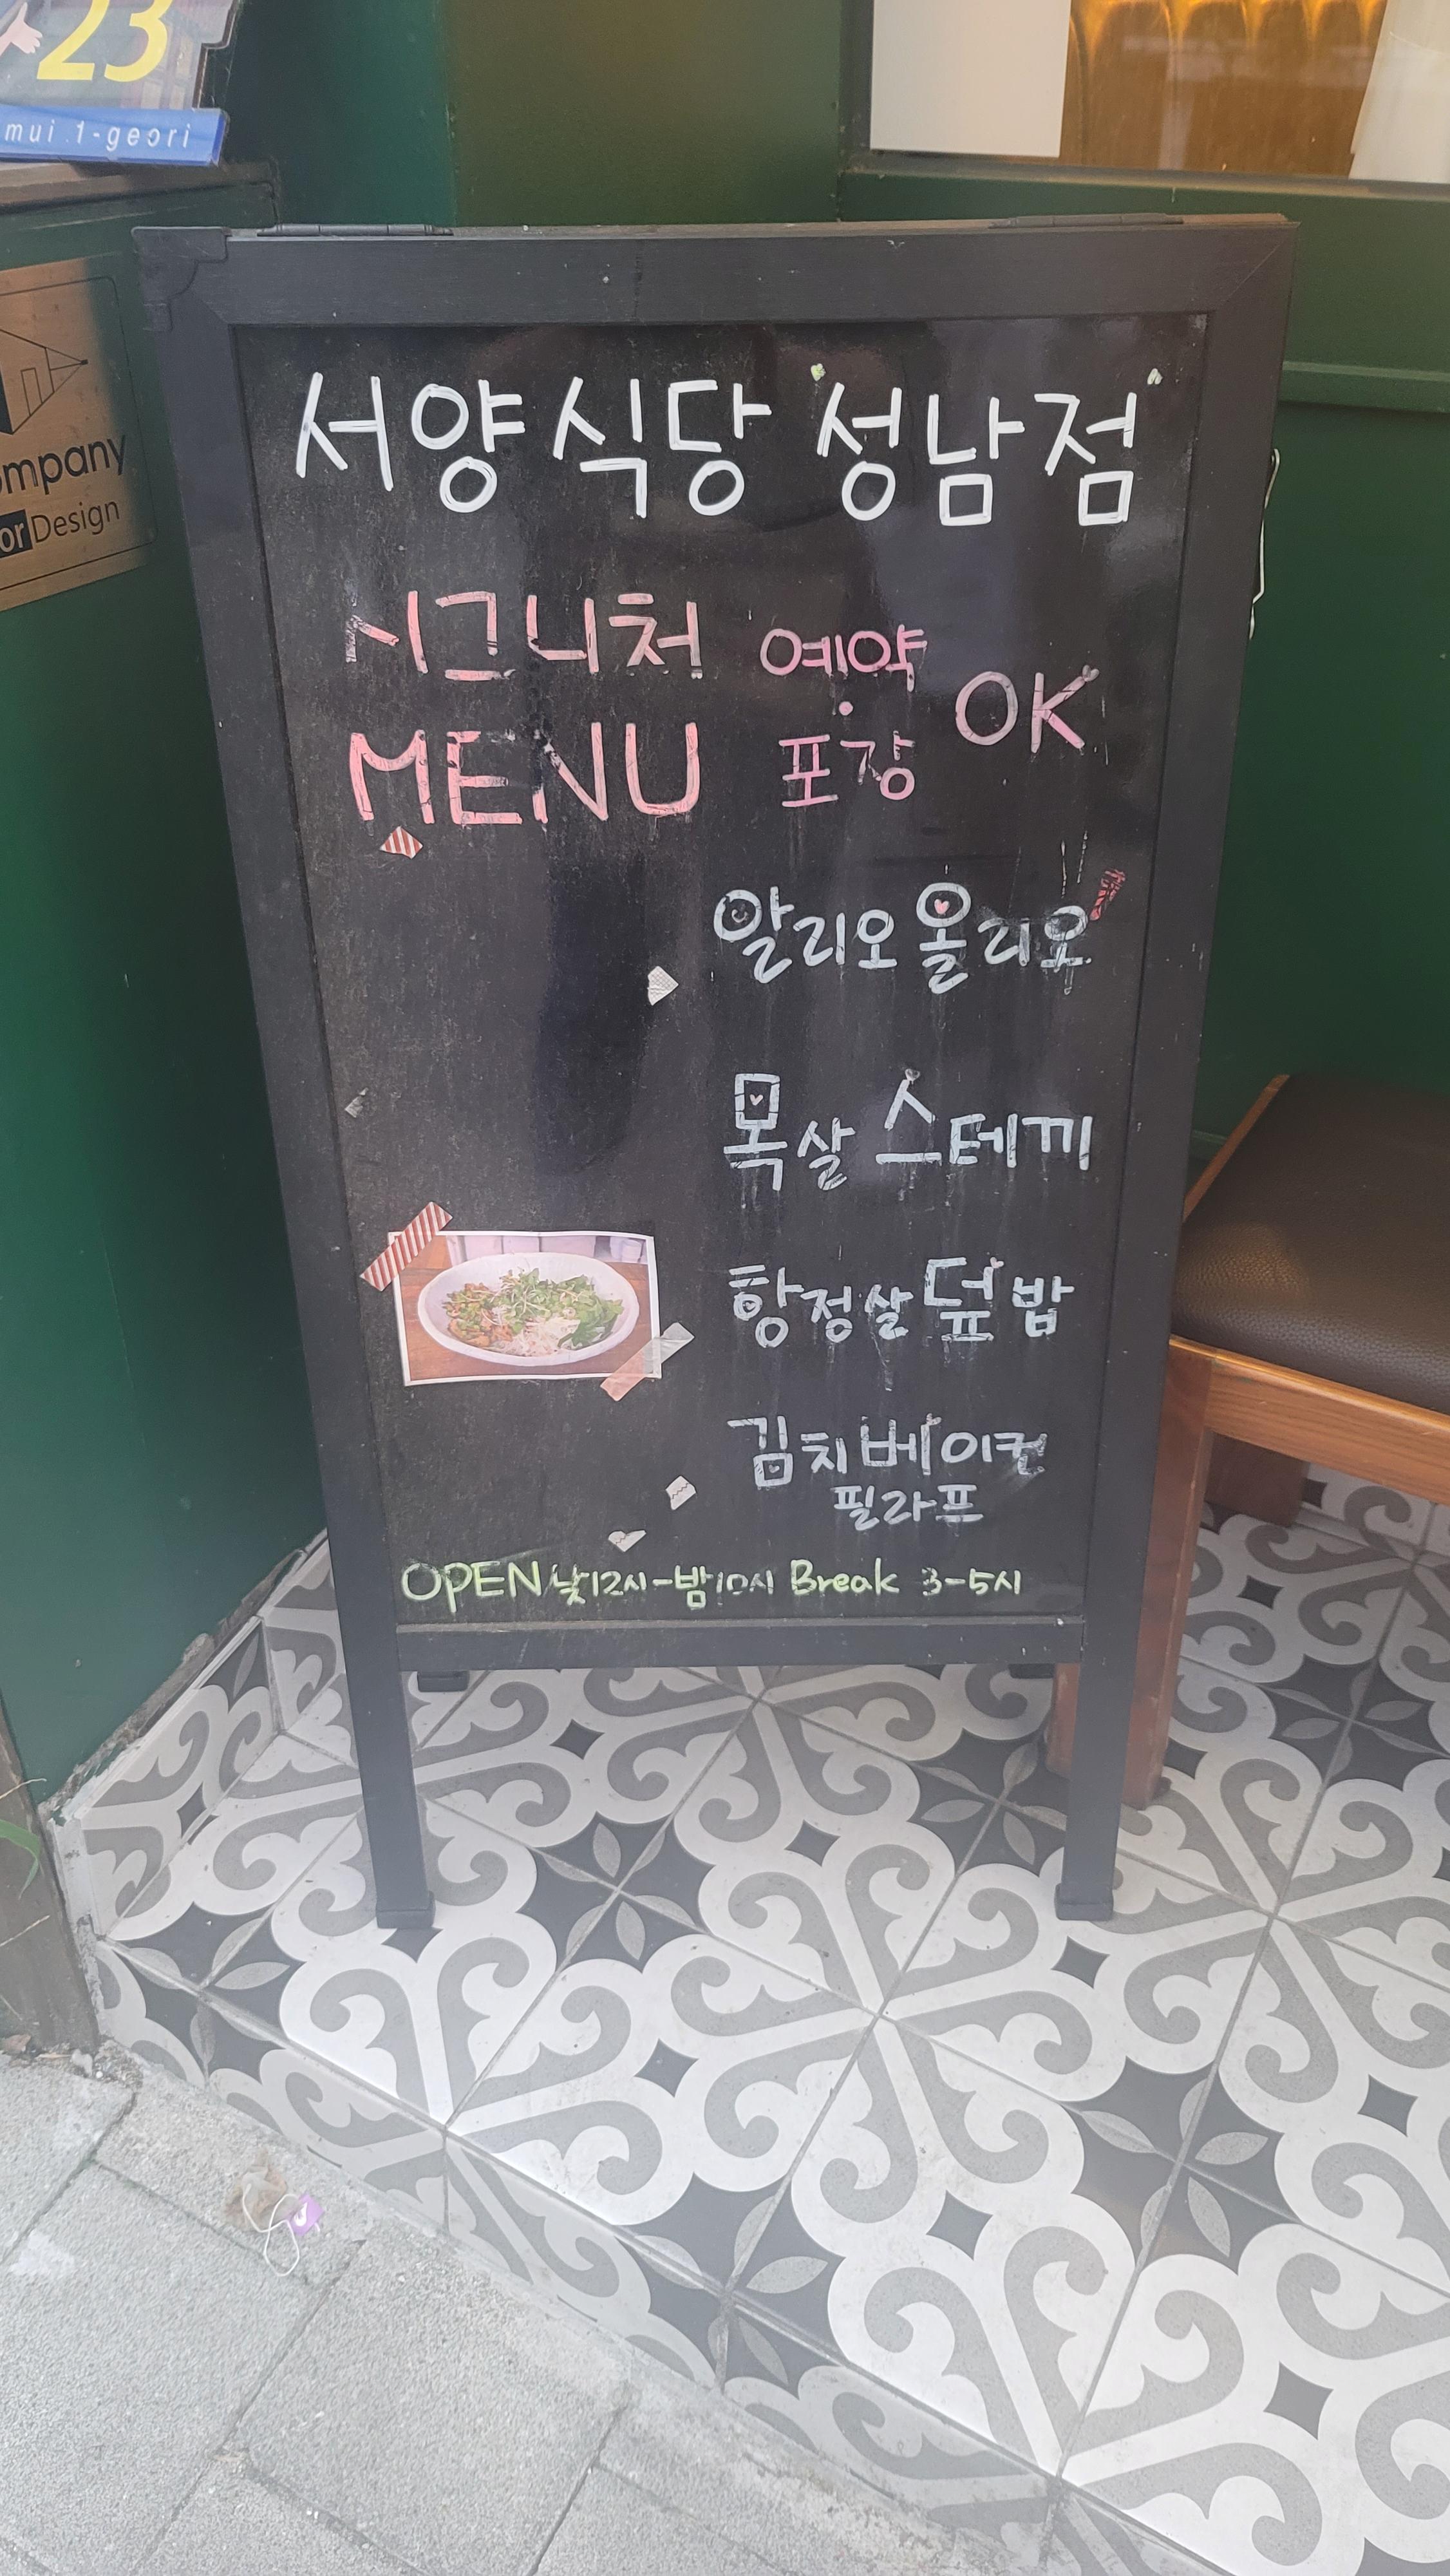 23
mui 1-geori
ompany
or Design
서양식당 '성남점'
시그니처 예약
·
OK
MENU 포장
알리오올리오
목살 스테끼
항정살덮밥
김치베이컨
필라프
OPEN 낮12시-밤10시 Break 3-5시